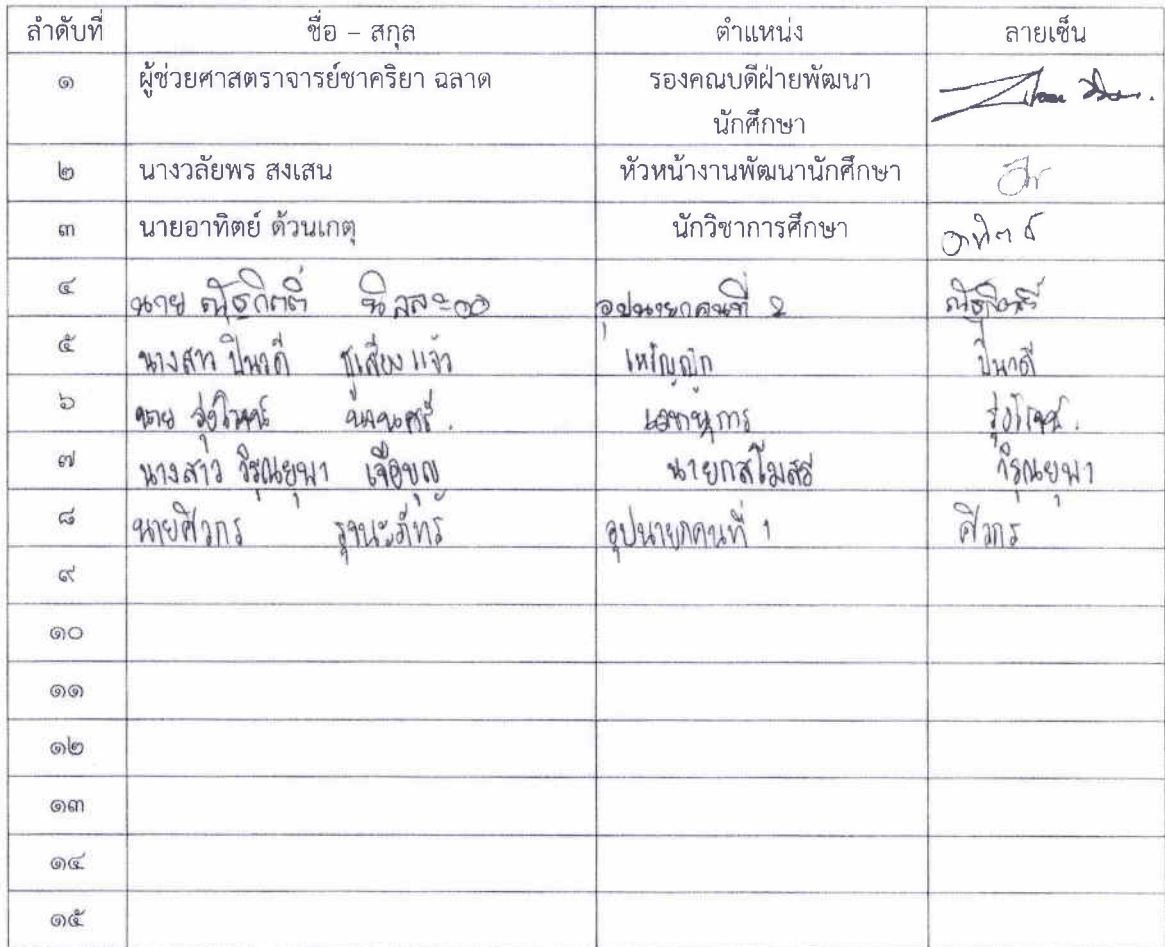 ลำดับที่ ชื่อ – สกุล ตำแหน่ง ลายเซ็น
๑ ผู้ช่วยศาสตราจารย์ชาคริยา ฉลาด รองคณบดีฝ่ายพัฒนา
นักศึกษา
๒ นางวลัยพร สงเสน หัวหน้างานพัฒนานักศึกษา
๓ นายอาทิตย์ ด้วนเกตุ นักวิชาการศึกษา อาทิตย์
๔ นาย ณัฐกิตติ์ นิลละออ อุปนายกคนที่ 2 ณัฐกิตติ์
๕ นางสาว ปิ่นวดี ชูเสียงแจ้ว เหรัญญิก ปิ่นวดี
๖ นาย รุ่งโรจน์ เลขานุการ รุ่งโรจน์
๗ นางสาว วิรุณยุพา เจือบุญ นายกสโมสร วิรุณยุพา
๘ นายศิวกร อุปนายกคนที่ 1 ศิวกร
๙
๑๐
๑๑
๑๒
๑๓
๑๔
๑๕